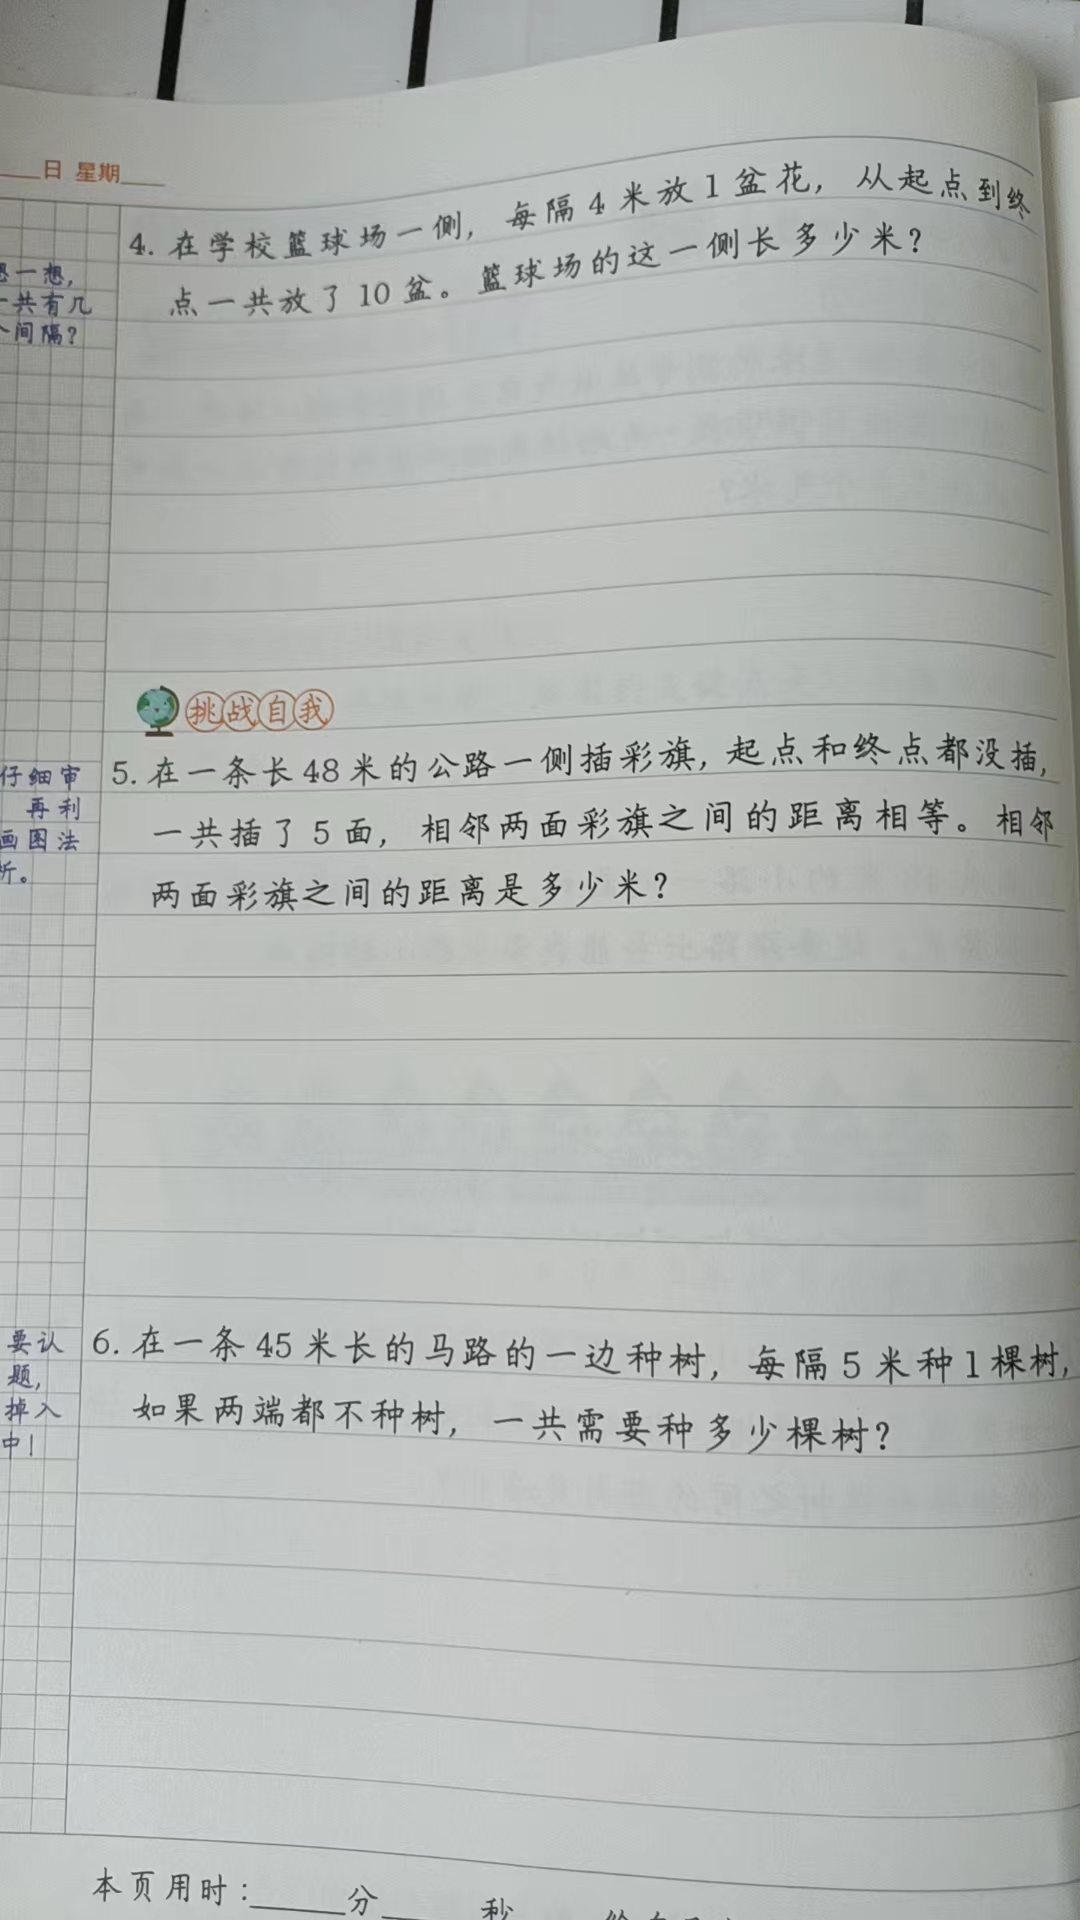 日 星期
4. 在学校篮球场一侧，每隔 4 米放 1 盆花，从起点到终
点一共放了 10 盆。篮球场的这一侧长多少米？
想一想，
一共有几
个间隔？
挑战自我
5. 在一条长 48 米的公路一侧插彩旗，起点和终点都没插，
一共插了 5 面，相邻两面彩旗之间的距离相等。相邻
两面彩旗之间的距离是多少米？
仔细审
再利
画图法
析。
6. 在一条 45 米长的马路的一边种树，每隔 5 米种 1 棵树，
如果两端都不种树，一共需要种多少棵树？
要认
题，
掉入
中！
本页用时：____分____秒